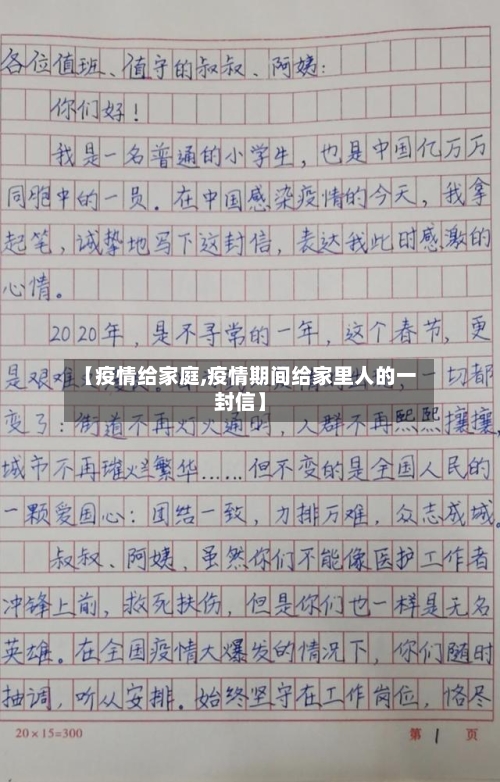 各位值班、值守的叔叔、阿姨：
你们好！
我是一名普通的小学生，也是中国亿万万
同胞中的一员。在中国感染疫情的今天，我拿
起笔，诚挚地写下这封信，表达我此时感激的
心情。
2020年，是不寻常的一年，这个春节，更
是艰难
一切都
【疫情给家庭,疫情期间给家里人的一
封信】
变了：街道不再灯火通明，人群不再熙熙攘攘，
城市不再璀灿繁华……但不变的是全国人民的
一颗爱国心：团结一致，力排万难，众志成城。
叔叔、阿姨，虽然你们不能像医护工作者
冲锋上前，救死扶伤，但是你们也一样是无名
英雄。在全国疫情大爆发的情况下，你们随时
抽调，听从安排。始终坚守在工作岗位，恪尽
20×15=300
第 1 页